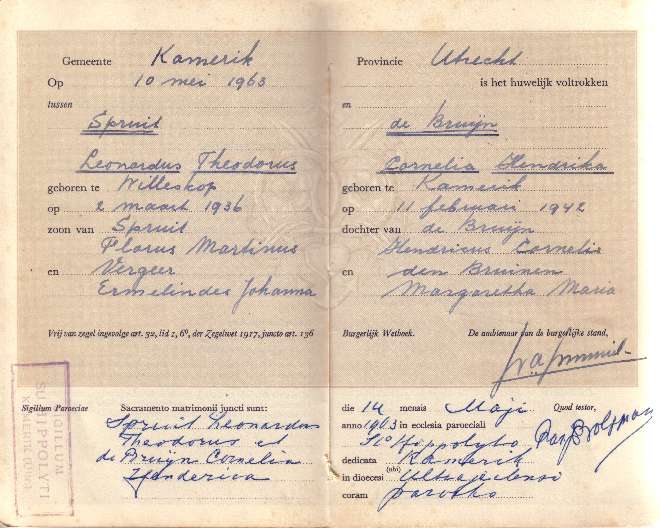 Gemeente Kamerik
Op 10 mei 1963
tussen
Spruit
Leonardus Theodorus
geboren te Willeskop
op 2 maart 1936
zoon van Spruit
Florus Martinus
en Vergeer
Ermelindes Johanna
Provincie Utrecht
is het huwelijk voltrokken
en
de Bruijn
Cornelia Hendrika
geboren te Kamerik
op 11 februari 1942
dochter van de Bruijn
Hendricus Cornelis
en den Bruinen
Margaretha Maria
Vrij van zegel ingevolge art. 32, lid 1, 6º, der Zegelwet 1917, juncto art. 136 Burgerlijk Wetboek.
De ambtenaar van de burgerlijke stand,
Sigilium Paroeciae
SIGILLUM
HIPPOLYTI
Sacramento matrimonii juncti sunt:
Spruit Leonardus
Theodorus et
de Bruijn Cornelia
Henderica
die 14 mensis Maji Quod testor,
anno 1963 in ecclesia paroeciali
Sto Hippolyto
dedicata Kamerik
(ubi)
in dioecesi
coram parocho